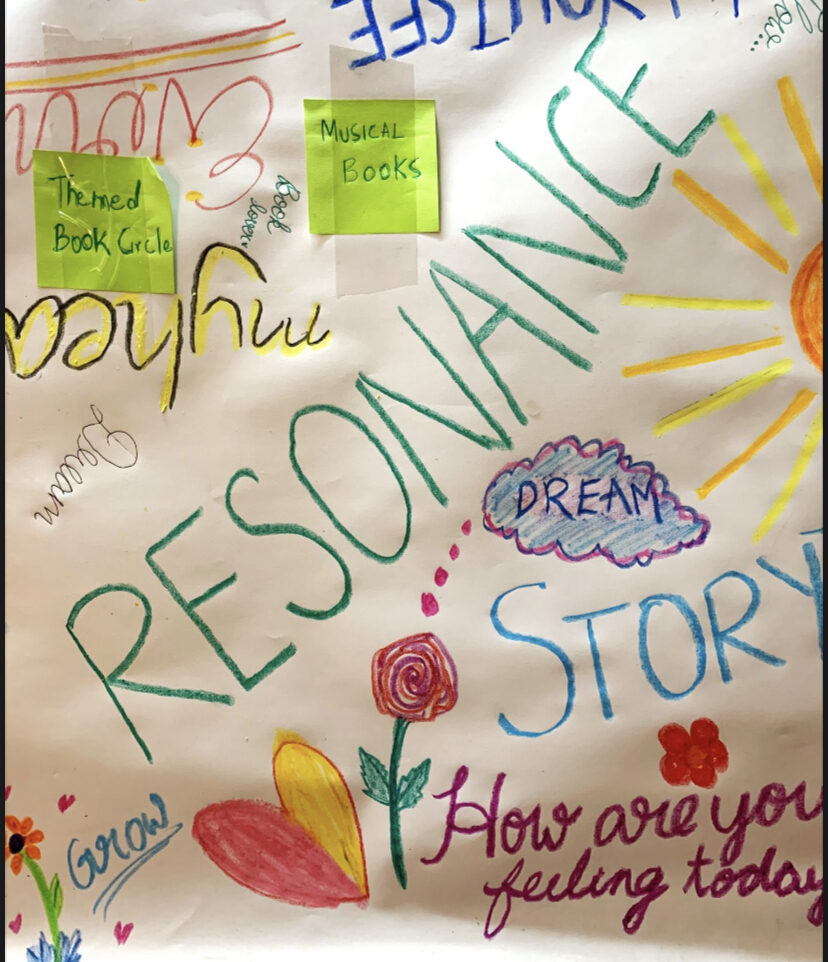 MUSICAL
BOOKS
Themed
BOOK Circle
Book
lover..
my hea
Dream
RESONANCE
DREAM
STORY
GROW
How are you
feeling today